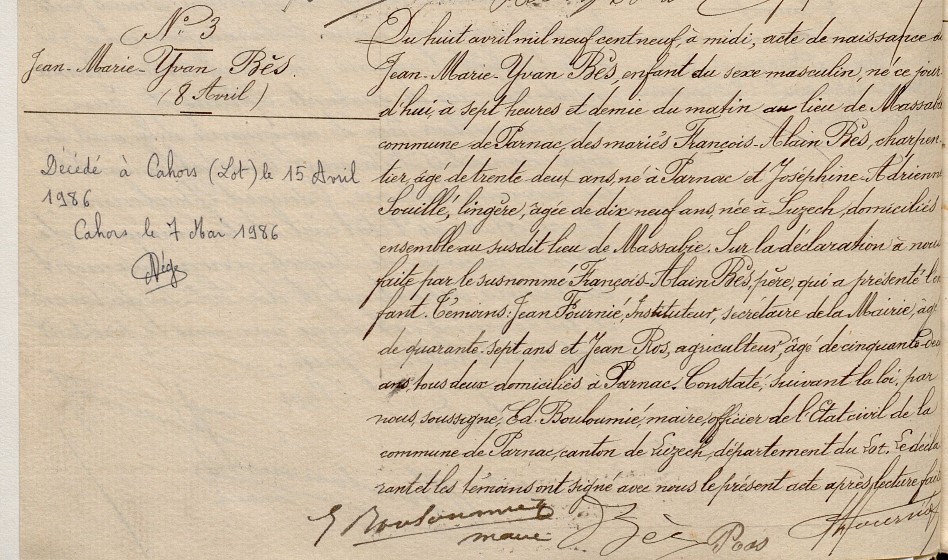 N° 3
Jean-Marie-Yvan Bès.
(8 Avril)
Décédé à Cahors (Lot) le 15 Avril
1986
Cahors le 7 Mai 1986
Du huit avril mil neuf cent neuf, à midi, acte de naissance de
Jean-Marie-Yvan Bès, enfant du sexe masculin, né ce jour
d'hui, à sept heures et demie du matin au lieu de Massabie
commune de Parnac, des mariés François-Alain Bès, charpen-
tier, âgé de trente deux ans, né à Parnac et Joséphine-Adrienne
Souillé, lingère, âgée de dix neuf ans, née à Luzech, domiciliés
ensemble au susdit lieu de Massabie. Sur la déclaration à nous
faite par le susnommé François-Alain Bès, père, qui a présenté l'en
fant. Témoins: Jean Fournié, Instituteur, secrétaire de la Mairie, âgé
de quarante-sept ans et Jean Ros, agriculteur, âgé de cinquante-deux
ans, tous deux domiciliés à Parnac. Constaté, suivant la loi, par
nous, soussigné, Ed. Bouloumié, maire, officier de l'Etat civil de la
commune de Parnac, canton de Luzech, département du Lot. Le décla
rant et les témoins ont signé avec nous le présent acte après lecture faite
E Bouloumié Bès Ros Fournié
maire